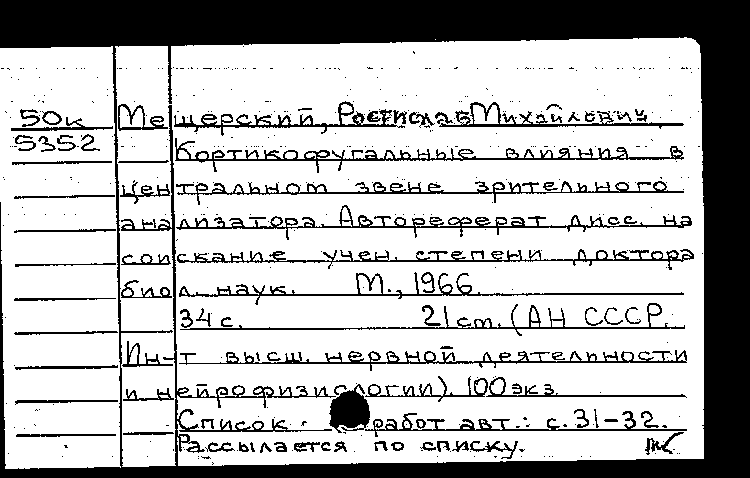 50к Мещерский, Ростислав Михайлович
5352 Кортикофугальные влияния в
центральном звене зрительного
анализатора. Автореферат дисс. на
соискание учен. степени доктора
биол. наук. М., 1966.
34 с. 21 cm. (АН СССР.
Ин-т высш. нервной деятельности
и нейрофизиологии). 100 экз.
Список работ авт.: с. 31-32.
Рассылается по списку.